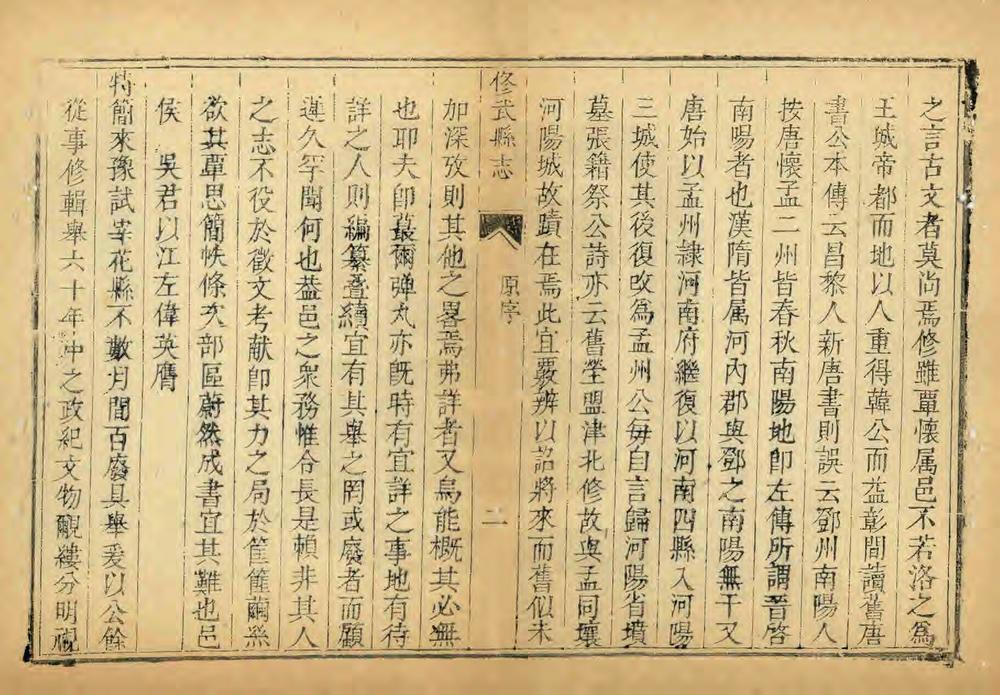 之言古文者莫尚焉修雖覃懷属邑不若洛之為
王城帝都而地以人重得韓公而益彰間讀舊唐
書公本傳云昌黎人新唐書則誤云鄧州南陽人
按唐懷孟二州皆春秋南陽地卽左傳所謂晉啓
南陽者也漢隋皆属河內郡與鄧之南陽無干又
唐始以孟州隷河南府繼復以河南四縣入河陽
三城使其後復改為孟州公每自言歸河陽省墳
墓張籍祭公詩亦云舊塋盟津北修故與孟同壤
河陽城故蹟在焉此宜覈辨以詔將來而舊似未
修武縣志 原序 二
加深攷則其他之畧焉弗詳者又烏能概其必無
也耶夫卽蕞爾弹丸亦旣時有宜詳之事地有待
詳之人則編纂叠續宜有其舉之罔或廢者而顧
遵久罕聞何也葢邑之衆務惟令長是頼非其人
之志不役於徵文考献卽其力之局於筐篚繭絲
欲其覃思簡帙條次部區蔚然成書宜其難也邑
侯 吳君以江左偉英膺
特簡來豫試宰花縣不數月間百廢具舉爰以公餘
從事修輯舉六十年中之政紀文物覼縷分明視